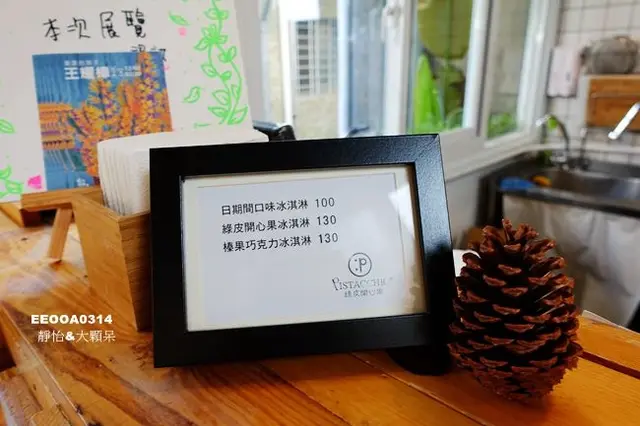 本次展覽
日期間口味冰淇淋 100
綠皮開心果冰淇淋 130
榛果巧克力冰淇淋 130
PISTACCHIO
綠皮開心果
EEOOA0314
靜怡&大顆呆